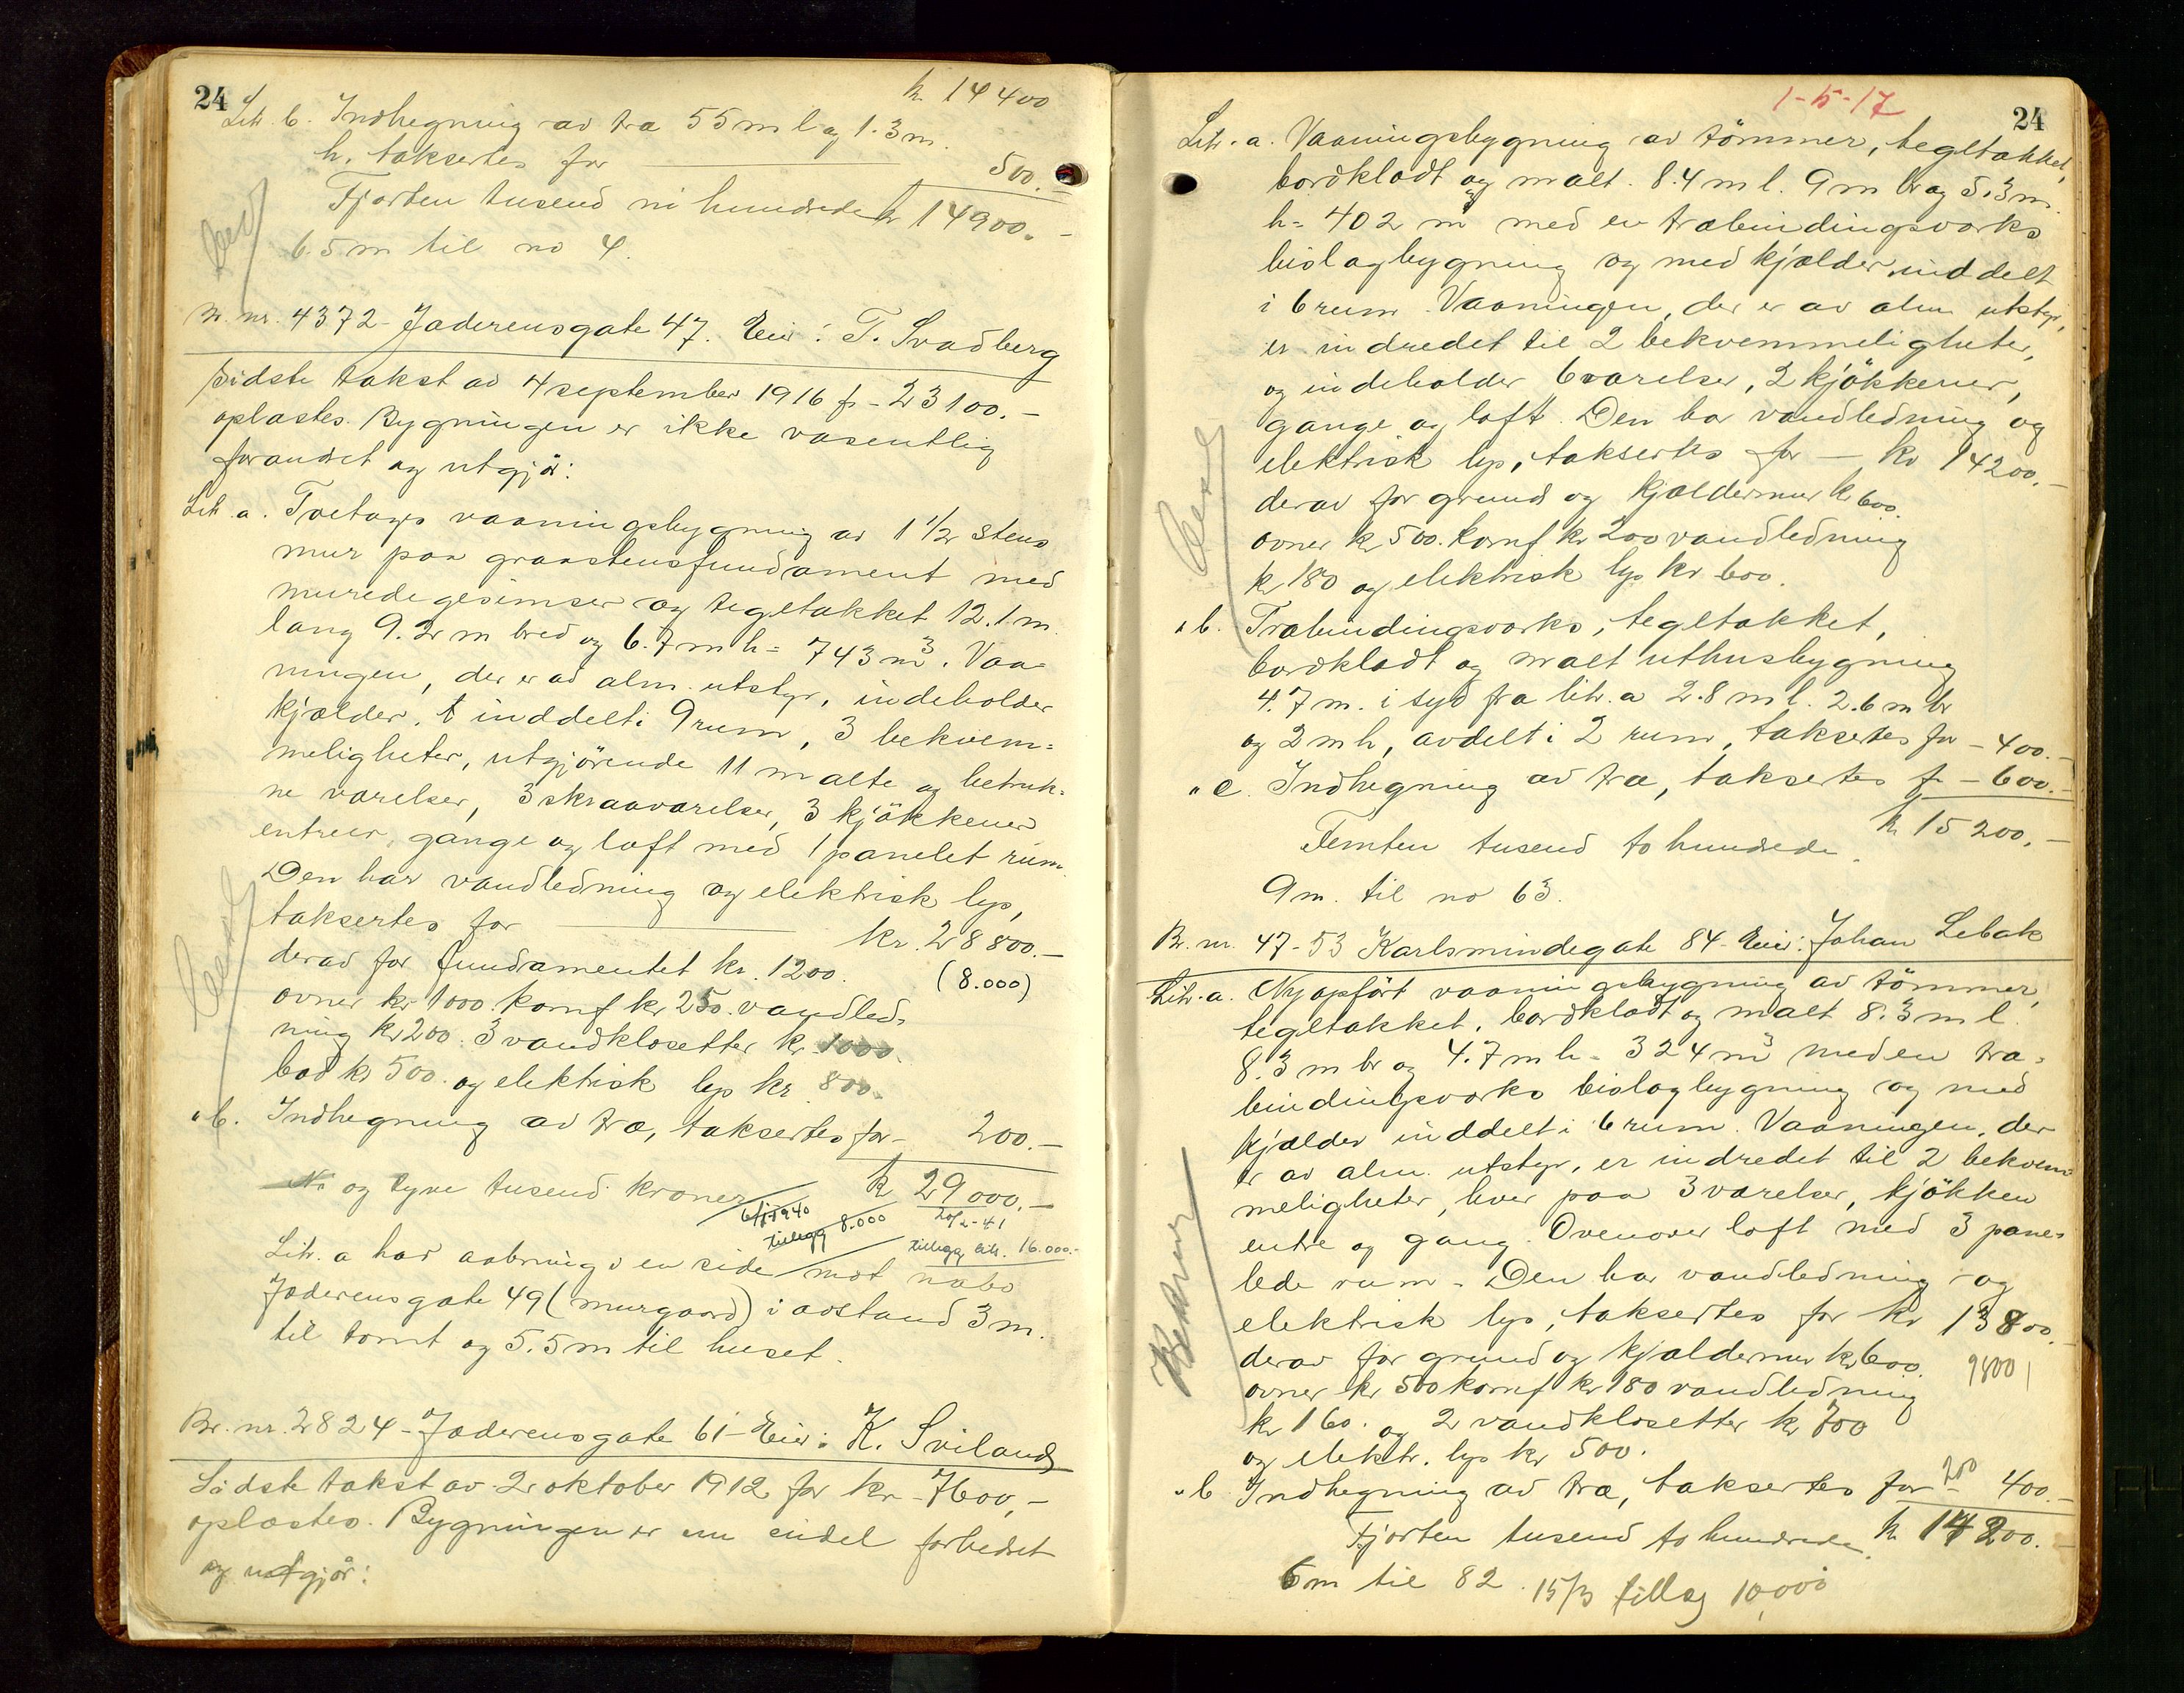 24
kr. 14400
Litr. b. Indhegning av træ 55 m l og 1.3 m.
h. taksertes for — 500.-
Fjorten tusend ni hundrede kr 14900.-
6.5 m til no 4.
Br. nr. 4372 - Jæderensgate 47. Eier: T. Svadberg
Sidste takst av 4 september 1916 fr - 23100.-
oplæstes. Bygningen er ikke væsentlig
forandret og utgjør:
Litr. a. Toetages vaaningsbygning av 1 1/2 stens
mur paa graastensfundament med
murede gesimser og tegltækket 12.1 m.
lang 9.2 m bred og 6.7 m h = 743 m³. Vaa-
ningen, der er av alm. utstyr, indeholder
kjælder, inddelt i 9 rum, 3 bekvem=
meligheter, utgjørende 11 malte og betruk=
ne værelser, 3 skraaværelser, 3 kjøkkener
entreer, gange og loft med 1 panelet rum.
Den har vandledning og elektrisk lys,
taksertes for — kr. 28800.-
derav for fundamentet kr. 1200. (8.000)
ovner kr 1000. komf kr 250. vandled=
ning kr 200. 3 vandklosetter kr 1000.
bad kr 500. og elektrisk lys kr 800.
" b. Indhegning av træ, taksertes for - 200.-
Ni og tyve tusend kroner kr 29000.-
6/5 1940 20/2-41
tillegg 8.000 tillegg litr. 16.000.-
Litr. a har aabning i en side mot nabo
Jæderensgate 49 (murgaard) i avstand 3 m.
til tomt og 5.5 m til huset.
Br. nr. 2824 - Jæderensgate 61 - Eier: K. Sviland
Sidste takst av 2 oktober 1912 for kr - 7600,-
oplæstes. Bygningen er nu endel forbedret
og utgjør:
1-5-17
24
Litr. a. Vaaningsbygning av tømmer, tegltækket,
bordklædt og malt. 8.4 m l. 9 m br og 5.3 m.
h = 402 m med en træbindingsverks
bislagbygning og med kjælder inddelt
i 6 rum. Vaaningen, der er av alm utstyr,
er indredet til 2 bekvemmeligheter,
og indeholder 6 værelser, 2 kjøkkener,
gange og loft. Den har vandledning og
elektrisk lys, taksertes for — kr 14200.-
derav for grund og kjældermur kr 600.
ovner kr 500. komf kr 200 vandledning
kr 180 og elektrisk lys kr 600.
" b. Træbindingsverks, tegltækket,
bordklædt og malt uthusbygning
4.7 m. i syd fra litr. a 2.8 m l. 2.6 m br
og 2 m h, avdelt i 2 rum, taksertes for - 400.-
" c. Indhegning av træ, taksertes fr - 600.-
Femten tusend to hundrede. kr 15200.-
9 m. til no 63.
Br. nr. 47-53 Karlsmindegate 84 - Eier: Johan Lebak
Litr. a. Nyopført vaaningsbygning av tømmer,
tegltækket, bordklædt og malt 8.3 m l.
8.3 m br og 4.7 m h = 324 m³ med en træ=
bindingsverks bislagbygning og med
kjælder inddelt i 6 rum. Vaaningen, der
er av alm. utstyr, er indredet til 2 bekvem=
meligheter, hver paa 3 værelser, kjøkken
entre og gang. Ovenover loft med 3 pane=
lede rum. Den har vandledning og
elektrisk lys, taksertes for kr 13800.-
derav for grund og kjældermur kr 600. 9800
ovner kr 500 komf kr 180 vandledning
kr 160. og 2 vandklosetter kr 700
og elektr. lys kr 500.
" b Indhegning av træ, taksertes for - 200 400.-
Fjorten tusend to hundrede. kr 14200.-
6 m til 82. 15/3 tillæg 10,000